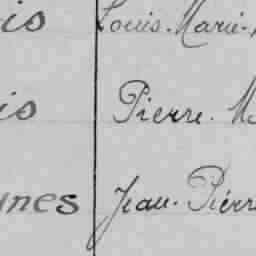 is Louis-Marie-
is Pierre. M
nes Jean-Pierre